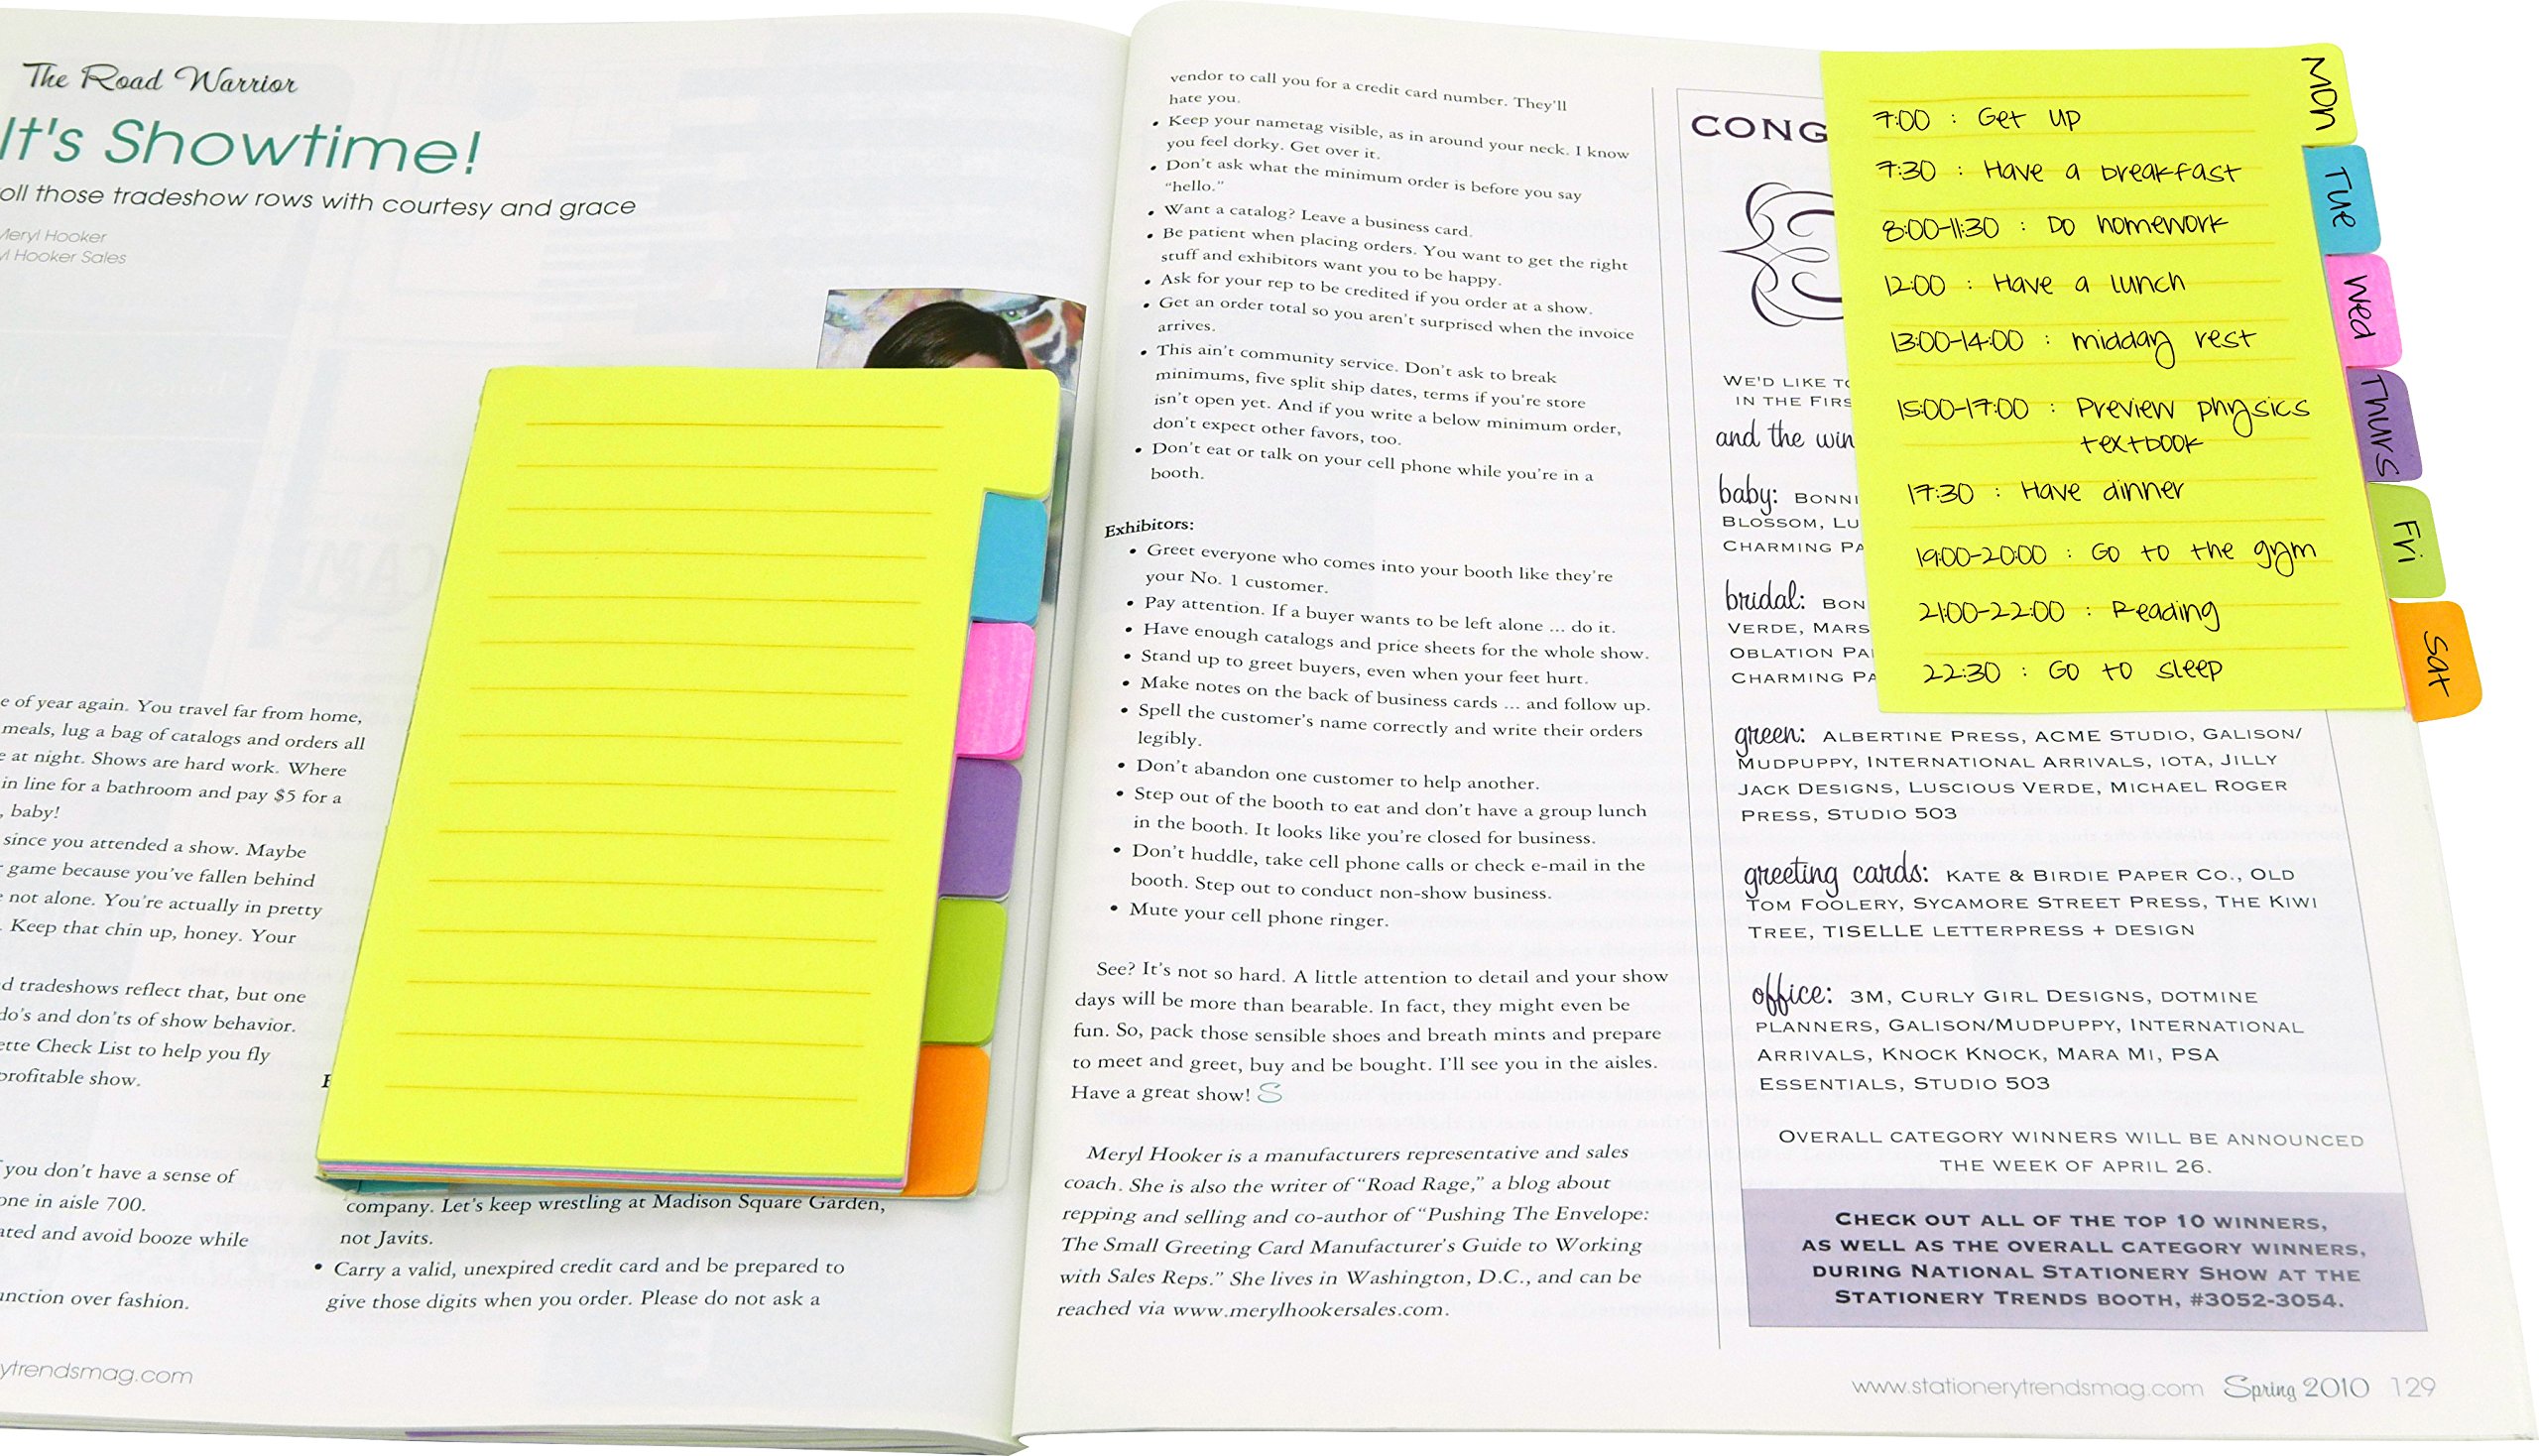 The Road Warrior
It's Showtime!
oll those tradeshow rows with courtesy and grace
Meryl Hooker
yl Hooker Sales
e of year again. You travel far from home,
meals, lug a bag of catalogs and orders all
e at night. Shows are hard work. Where
in line for a bathroom and pay $5 for a
, baby!
since you attended a show. Maybe
r game because you've fallen behind
e not alone. You're actually in pretty
. Keep that chin up, honey. Your
d tradeshows reflect that, but one
do's and don'ts of show behavior.
ette Check List to help you fly
profitable show.
you don't have a sense of
one in aisle 700.
ated and avoid booze while
unction over fashion.
company. Let's keep wrestling at Madison Square Garden,
not Javits.
• Carry a valid, unexpired credit card and be prepared to
give those digits when you order. Please do not ask a
ytrendsmag.com
vendor to call you for a credit card number. They'll
hate you.
• Keep your nametag visible, as in around your neck. I know
you feel dorky. Get over it.
• Don't ask what the minimum order is before you say
"hello."
• Want a catalog? Leave a business card.
• Be patient when placing orders. You want to get the right
stuff and exhibitors want you to be happy.
• Ask for your rep to be credited if you order at a show.
• Get an order total so you aren't surprised when the invoice
arrives.
• This ain't community service. Don't ask to break
minimums, five split ship dates, terms if you're store
isn't open yet. And if you write a below minimum order,
don't expect other favors, too.
• Don't eat or talk on your cell phone while you're in a
booth.
Exhibitors:
• Greet everyone who comes into your booth like they're
your No. 1 customer.
• Pay attention. If a buyer wants to be left alone ... do it.
• Have enough catalogs and price sheets for the whole show.
• Stand up to greet buyers, even when your feet hurt.
• Make notes on the back of business cards ... and follow up.
• Spell the customer's name correctly and write their orders
legibly.
• Don't abandon one customer to help another.
• Step out of the booth to eat and don't have a group lunch
in the booth. It looks like you're closed for business.
• Don't huddle, take cell phone calls or check e-mail in the
booth. Step out to conduct non-show business.
• Mute your cell phone ringer.
See? It's not so hard. A little attention to detail and your show
days will be more than bearable. In fact, they might even be
fun. So, pack those sensible shoes and breath mints and prepare
to meet and greet, buy and be bought. I'll see you in the aisles.
Have a great show! S
Meryl Hooker is a manufacturers representative and sales
coach. She is also the writer of "Road Rage," a blog about
repping and selling and co-author of "Pushing The Envelope:
The Small Greeting Card Manufacturer's Guide to Working
with Sales Reps." She lives in Washington, D.C., and can be
reached via www.merylhookersales.com.
CONG
WE'D LIKE TO
IN THE FIRS
and the win
baby: BONNI
BLOSSOM, LU
CHARMING PA
bridal: BON
VERDE, MARS
OBLATION PA
CHARMING PA
green: ALBERTINE PRESS, ACME STUDIO, GALISON/
MUDPUPPY, INTERNATIONAL ARRIVALS, IOTA, JILLY
JACK DESIGNS, LUSCIOUS VERDE, MICHAEL ROGER
PRESS, STUDIO 503
greeting cards: KATE & BIRDIE PAPER CO., OLD
TOM FOOLERY, SYCAMORE STREET PRESS, THE KIWI
TREE, TISELLE LETTERPRESS + DESIGN
office: 3M, CURLY GIRL DESIGNS, DOTMINE
PLANNERS, GALISON/MUDPUPPY, INTERNATIONAL
ARRIVALS, KNOCK KNOCK, MARA MI, PSA
ESSENTIALS, STUDIO 503
OVERALL CATEGORY WINNERS WILL BE ANNOUNCED
THE WEEK OF APRIL 26.
CHECK OUT ALL OF THE TOP 10 WINNERS,
AS WELL AS THE OVERALL CATEGORY WINNERS,
DURING NATIONAL STATIONERY SHOW AT THE
STATIONERY TRENDS BOOTH, #3052-3054.
www.stationerytrendsmag.com Spring 2010 129
7:00 : Get up
7:30 : Have a breakfast
8:00-11:30 : Do homework
12:00 : Have a lunch
13:00-14:00 : midday rest
15:00-17:00 : Preview physics
textbook
17:30 : Have dinner
19:00-20:00 : Go to the gym
21:00-22:00 : Reading
22:30 : Go to sleep
Mon
Tue
Wed
Thurs
Fri
Sat